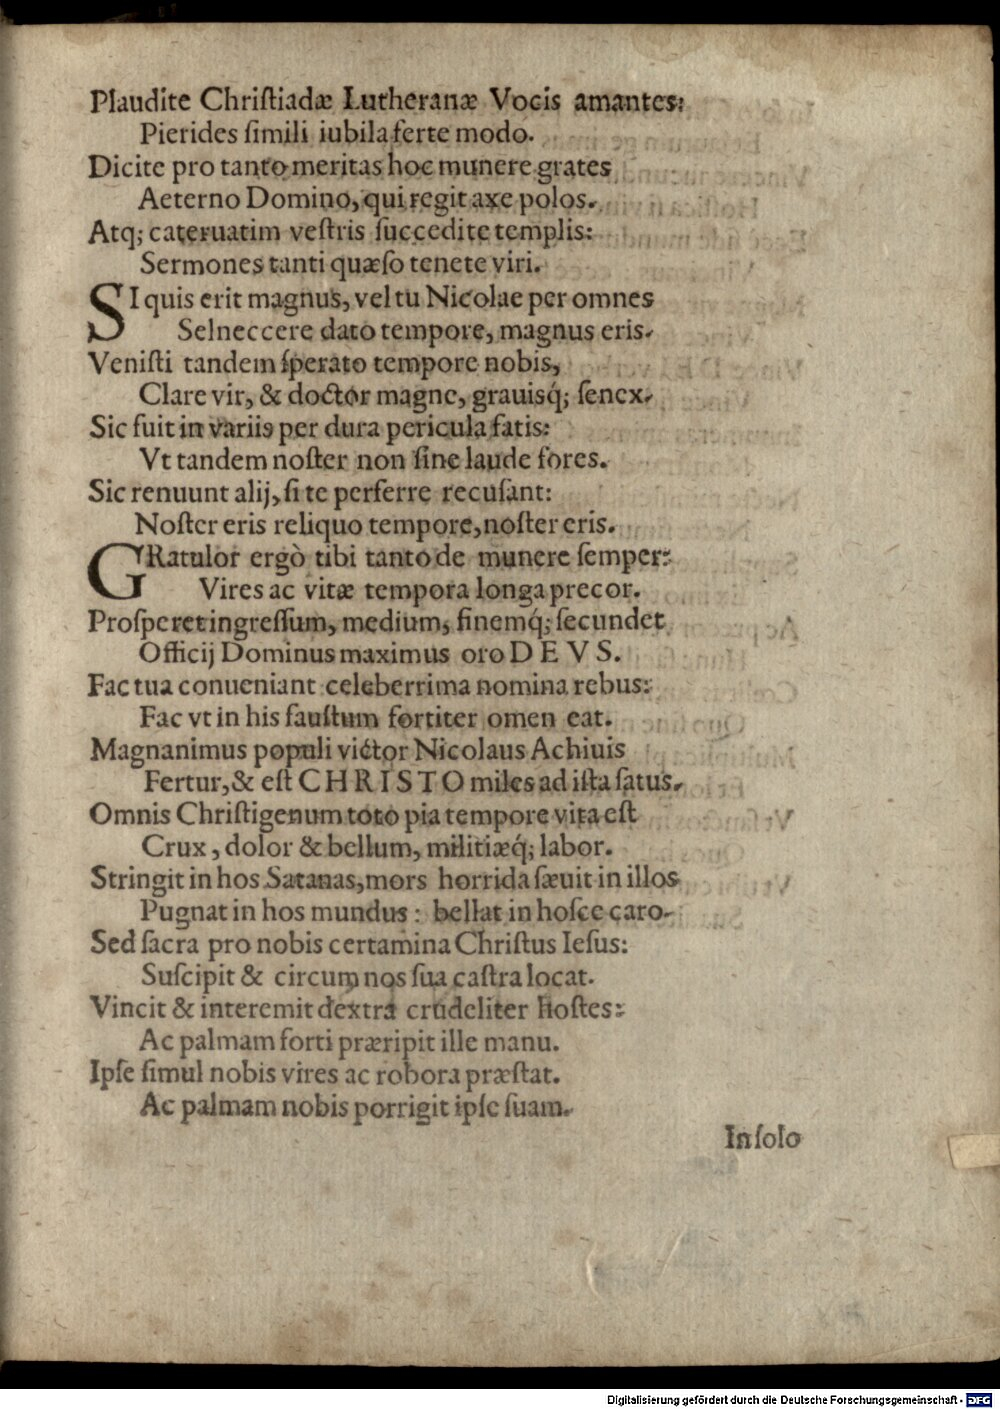 Plaudite Chriſtiadæ Lutheranæ Vocis amantes:
Pierides ſimili iubila ferte modo.
Dicite pro tanto meritas hoc munere grates
Aeterno Domino, qui regit axe polos.
Atq; cateruatim veſtris ſuccedite templis:
Sermones tanti quæſo tenete viri.
SI quis erit magnus, vel tu Nicolae per omnes
Selneccere dato tempore, magnus eris.
Veniſti tandem ſperato tempore nobis,
Clare vir, & doctor magne, grauisq́; ſenex.
Sic fuit in variis per dura pericula fatis:
Vt tandem noſter non ſine laude fores.
Sic renuunt alij, ſi te perferre recuſant:
Noſter eris reliquo tempore, noſter eris.
GRatulor ergò tibi tanto de munere ſemper:
Vires ac vitæ tempora longa precor.
Proſperet ingreſſum, medium, finemq́; ſecundet
Officij Dominus maximus oro DEVS.
Fac tua conueniant celeberrima nomina rebus:
Fac vt in his fauſtum fortiter omen eat.
Magnanimus populi victor Nicolaus Achiuis
Fertur, & eſt CHRISTO miles ad iſta ſatus.
Omnis Chriſtigenum toto pia tempore vita eſt
Crux, dolor & bellum, militiæq́; labor.
Stringit in hos Satanas, mors horrida ſæuit in illos
Pugnat in hos mundus: bellat in hoſce caro.
Sed ſacra pro nobis certamina Chriſtus Ieſus:
Suſcipit & circum nos ſua caſtra locat.
Vincit & interemit dextra crudeliter hoſtes:
Ac palmam forti præripit ille manu.
Ipſe ſimul nobis vires ac robora præſtat.
Ac palmam nobis porrigit ipſe ſuam.
In ſolo
Digitalisierung gefördert durch die Deutsche Forschungsgemeinschaft - DFG